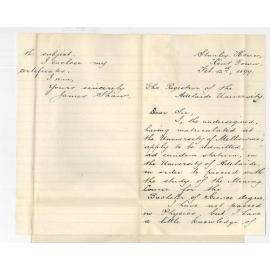 Stanley House,
Kent Town,
Feb. 12th, 1899.
The Registrar of the
Adelaide University.
Dear Sir,
I, the undersigned,
having matriculated at
the University of Melbourne,
apply to be admitted,
ad eundem statum, in
the University of Adelaide,
in order to proceed with
the study of the Mining
Course for the
Bachelor of Science degree.
I have not passed
in Physics, but I have
a little knowledge of
the subject.
I enclose my
certificates.
I am,
Yours sincerely
James Shaw.